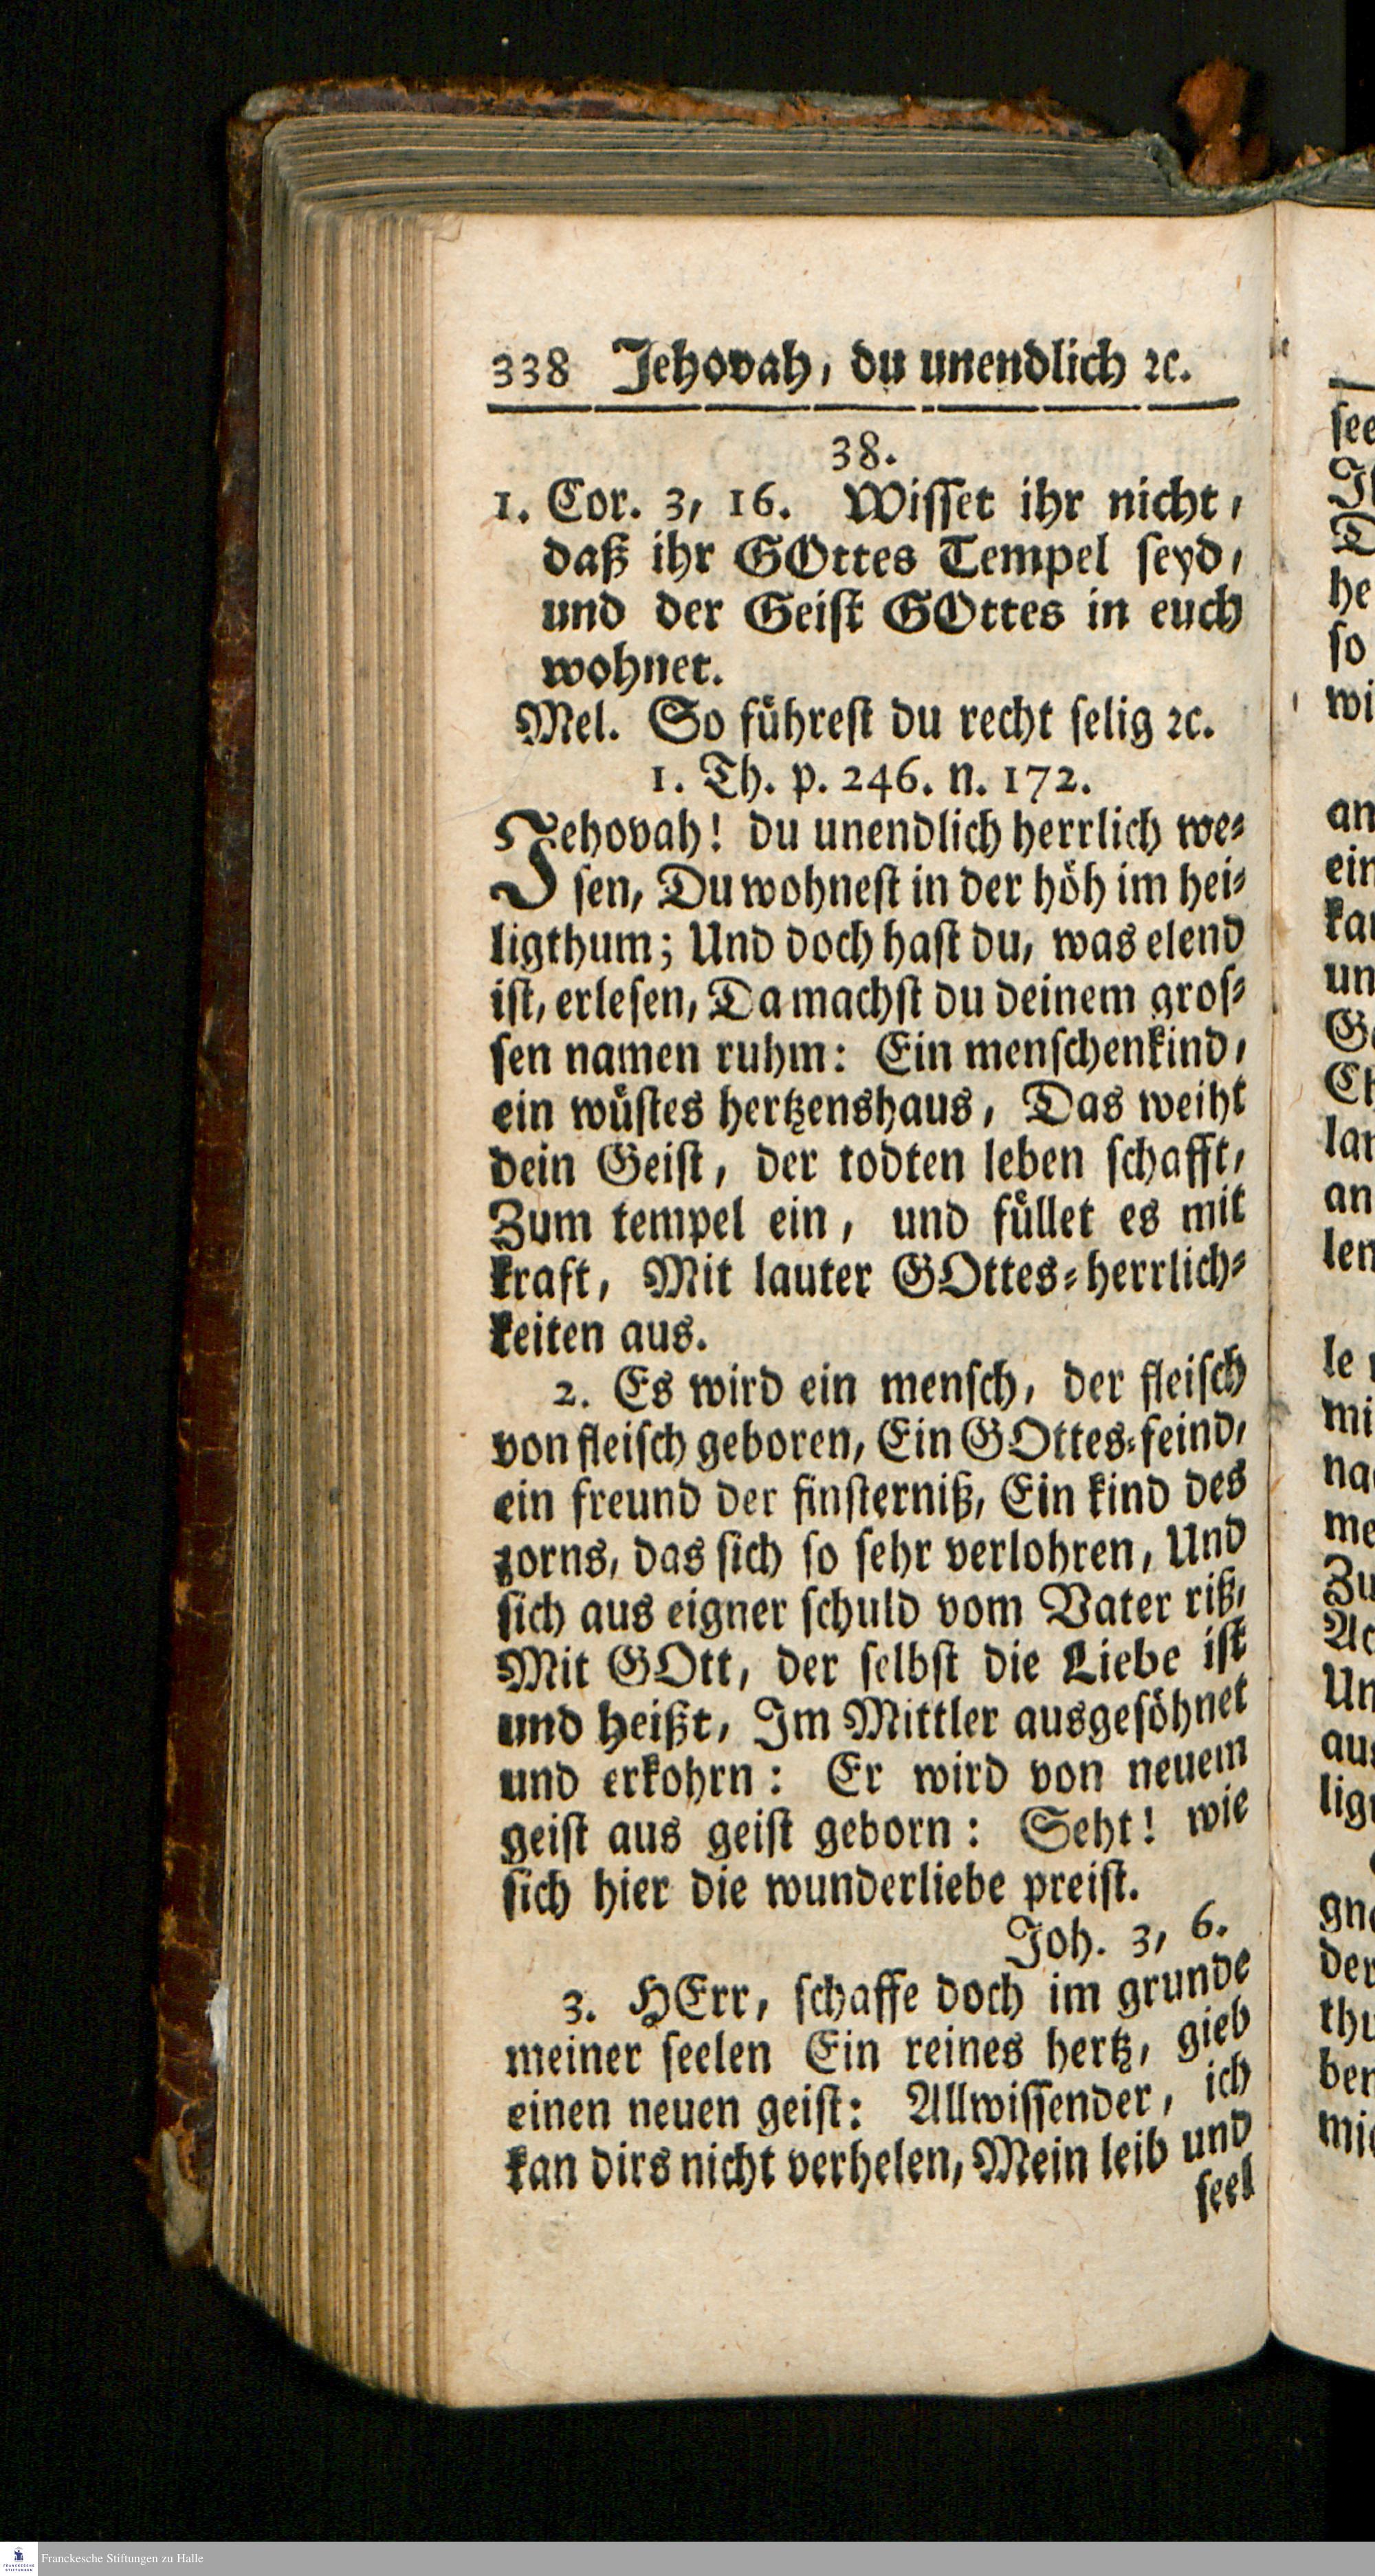 338 Jehovah, du unendlich ꝛc.
38.
1. Cor. 3, 16. Wiſſet ihr nicht,
daß ihr GOttes Tempel ſeyd,
und der Geiſt GOttes in euch
wohnet.
Mel. So fuͤhreſt du recht ſelig ꝛc.
1. Th. p. 246. n. 172.
Jehovah! du unendlich herrlich we⸗
ſen, Du wohneſt in der hoͤh im hei⸗
ligthum; Und doch haſt du, was elend
iſt, erleſen, Da machſt du deinem groſ⸗
ſen namen ruhm: Ein menſchenkind,
ein wuͤſtes hertzenshaus, Das weiht
dein Geiſt, der todten leben ſchafft,
Zum tempel ein, und fuͤllet es mit
kraft, Mit lauter GOttes⸗herrlich⸗
keiten aus.
2. Es wird ein menſch, der fleiſch
von fleiſch geboren, Ein GOttes⸗feind,
ein freund der finſterniß, Ein kind des
zorns, das ſich ſo ſehr verlohren, Und
ſich aus eigner ſchuld vom Vater riß,
Mit GOtt, der ſelbſt die Liebe iſt
und heißt, Im Mittler ausgeſoͤhnet
und erkohrn: Er wird von neuem
geiſt aus geiſt geborn: Seht! wie
ſich hier die wunderliebe preiſt.
Joh. 3, 6.
3. HErr, ſchaffe doch im grunde
meiner ſeelen Ein reines hertz, gieb
einen neuen geiſt: Allwiſſender, ich
kan dirs nicht verhelen, Mein leib und
ſeel
Franckesche Stiftungen zu Halle